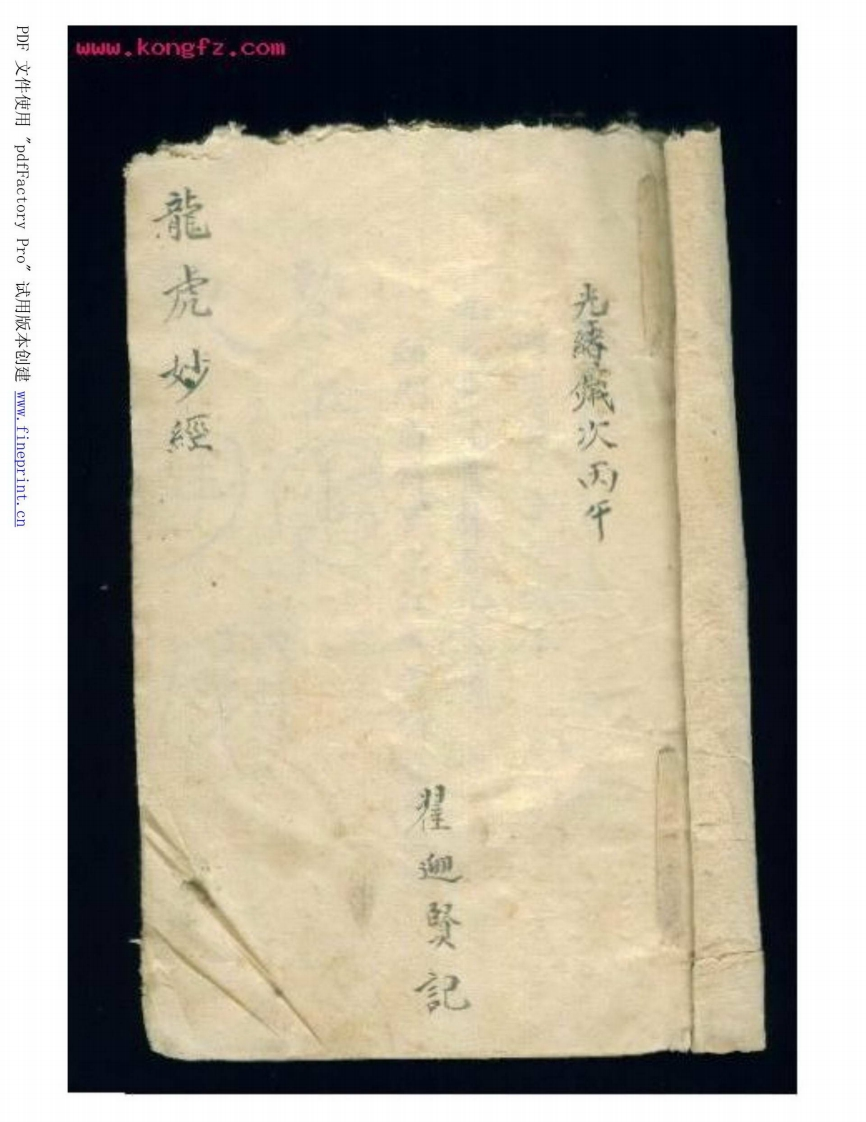 www.kongfz.com
光緒歲次丙午
翟迴賢記
龍虎妙經
PDF 文件使用 "pdfFactory Pro" 试用版本创建 www.fineprint.cn